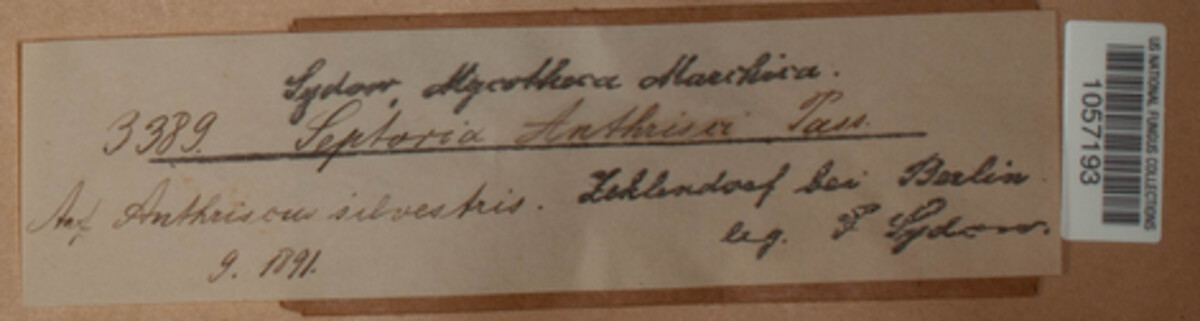 Sydow, Mycotheca Marchica.
3389. Septoria Anthrisci Pass.
Auf Anthriscus silvestris. Zehlendorf bei Berlin
9. 1891. leg. P Sydow.
US NATIONAL FUNGUS COLLECTIONS
1057193